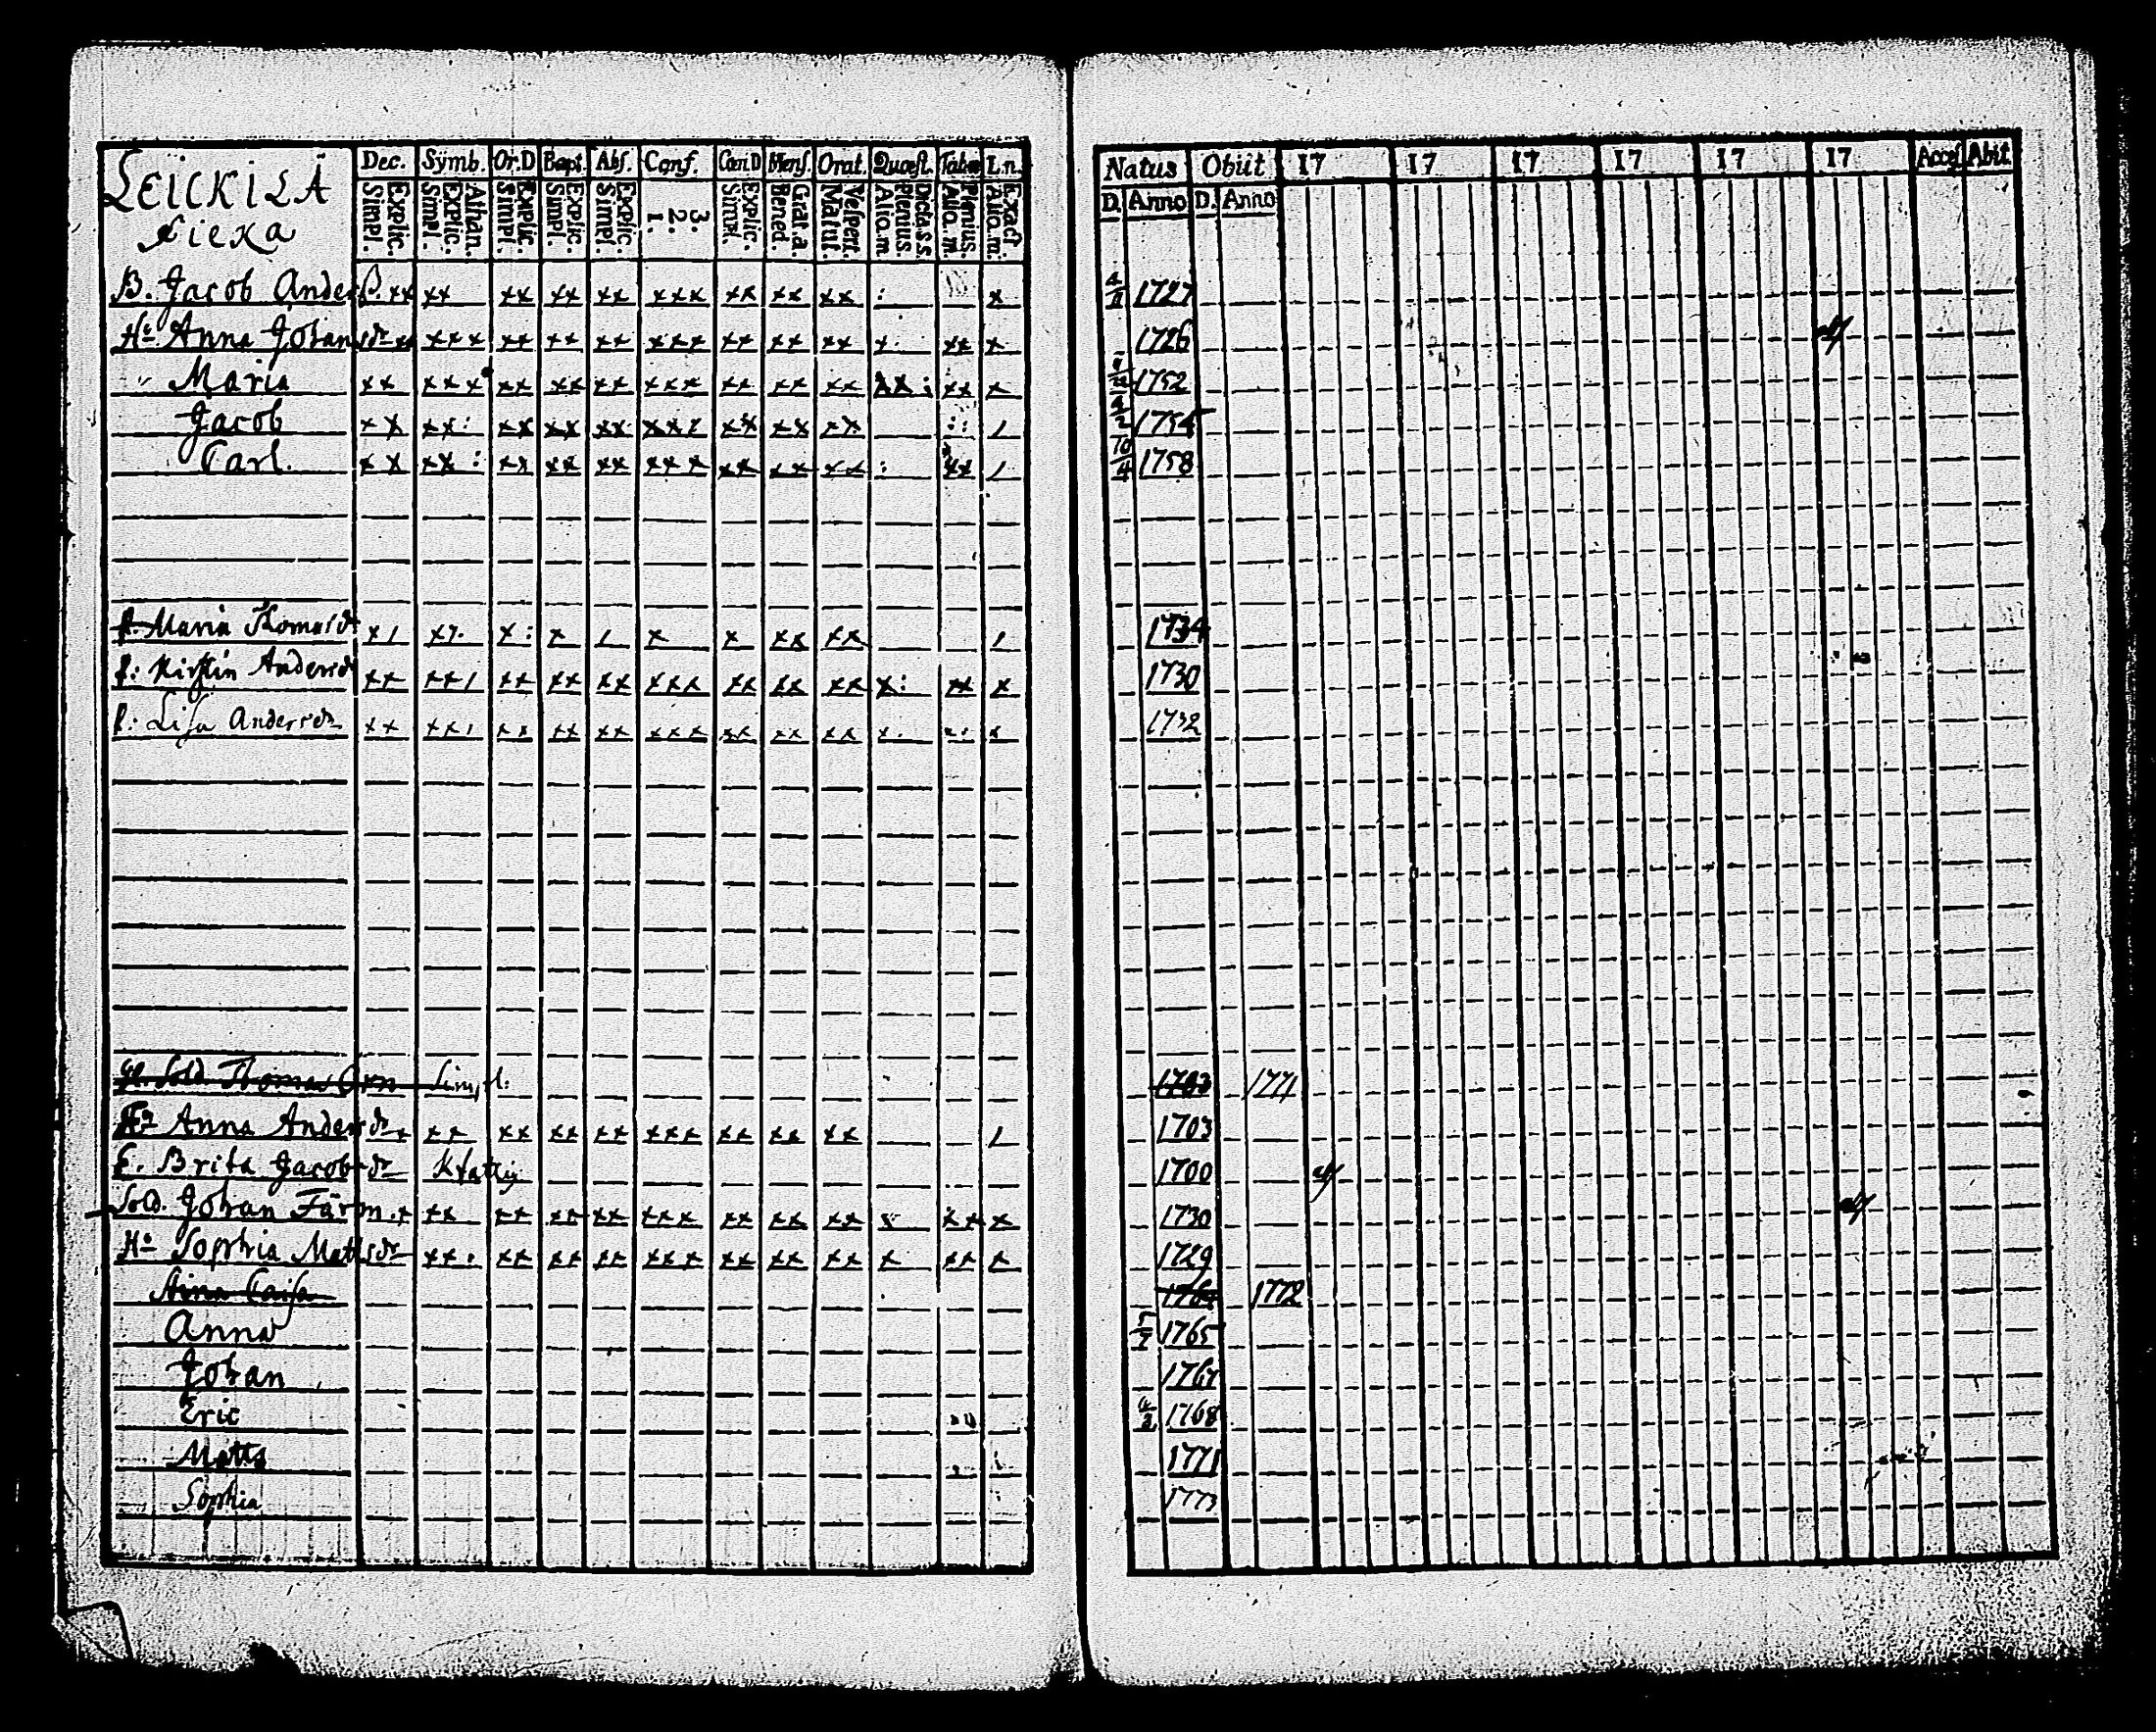 LEICKILÄ
Dec. Symb. Or.D Bapt. Abs. Conf. Can.D Mens. Orat. Quæst. Tabæ L.n.
Explic. Simpl. Athan. Explic. Simpl. Explic. Simpl. Explic. Simpl. Explic. Simpl. 3. 2. 1. Explic. Simpl. Grat. a. Bened. Vespert. Matut. Dicta s.s. Plenius. Aliq. m. Plenius. Aliq. m. Exact. Aliq. m.
Natus Obiit 17 17 17 17 17 17 Acces. Abit
D. Anno D. Anno
B. Jacob Anders. xx xx xx xx xx xxx xx xx xx : x 1727
Hu Anna Johansdr xx xxx xx xx xx xxx xx xx xx x: xx x 1726
Maria xx xxx xx xx xx xxx xx xx xx xx: xx x 1752
Jacob xx xx: xx xx xx xxx xx xx xx :: / 4/2 1754
Carl. xx xx: xx xx xx xxx xx xx xx : xx / 10/4 1758
Maria Thomasdr x/ x x: x / x x xx xx / 1734
P: Kirstin Andersdr xx xx/ xx xx xx xxx xx xx xx x: xx x 1730
P: Lisa Andersdr xx xx/ xx xx xx xxx xx xx xx x. x 1732
Sold. Thomas Örn 1703 1771
Anna Andersdr x xx xx xx xx xxx xx xx xx / 1703
E. Brita Jacobsdr 1700
Sold. Johan Färm. x xx xx xx xx xxx xx xx xx xx x 1730
Hu Sophia Mattsdr xx. xx xx xx xxx xx xx xx x xx x 1729
Caisa 1772
Anna 1765
Johan 1767
Eric 1768
Matts 1771
Sophia 1773